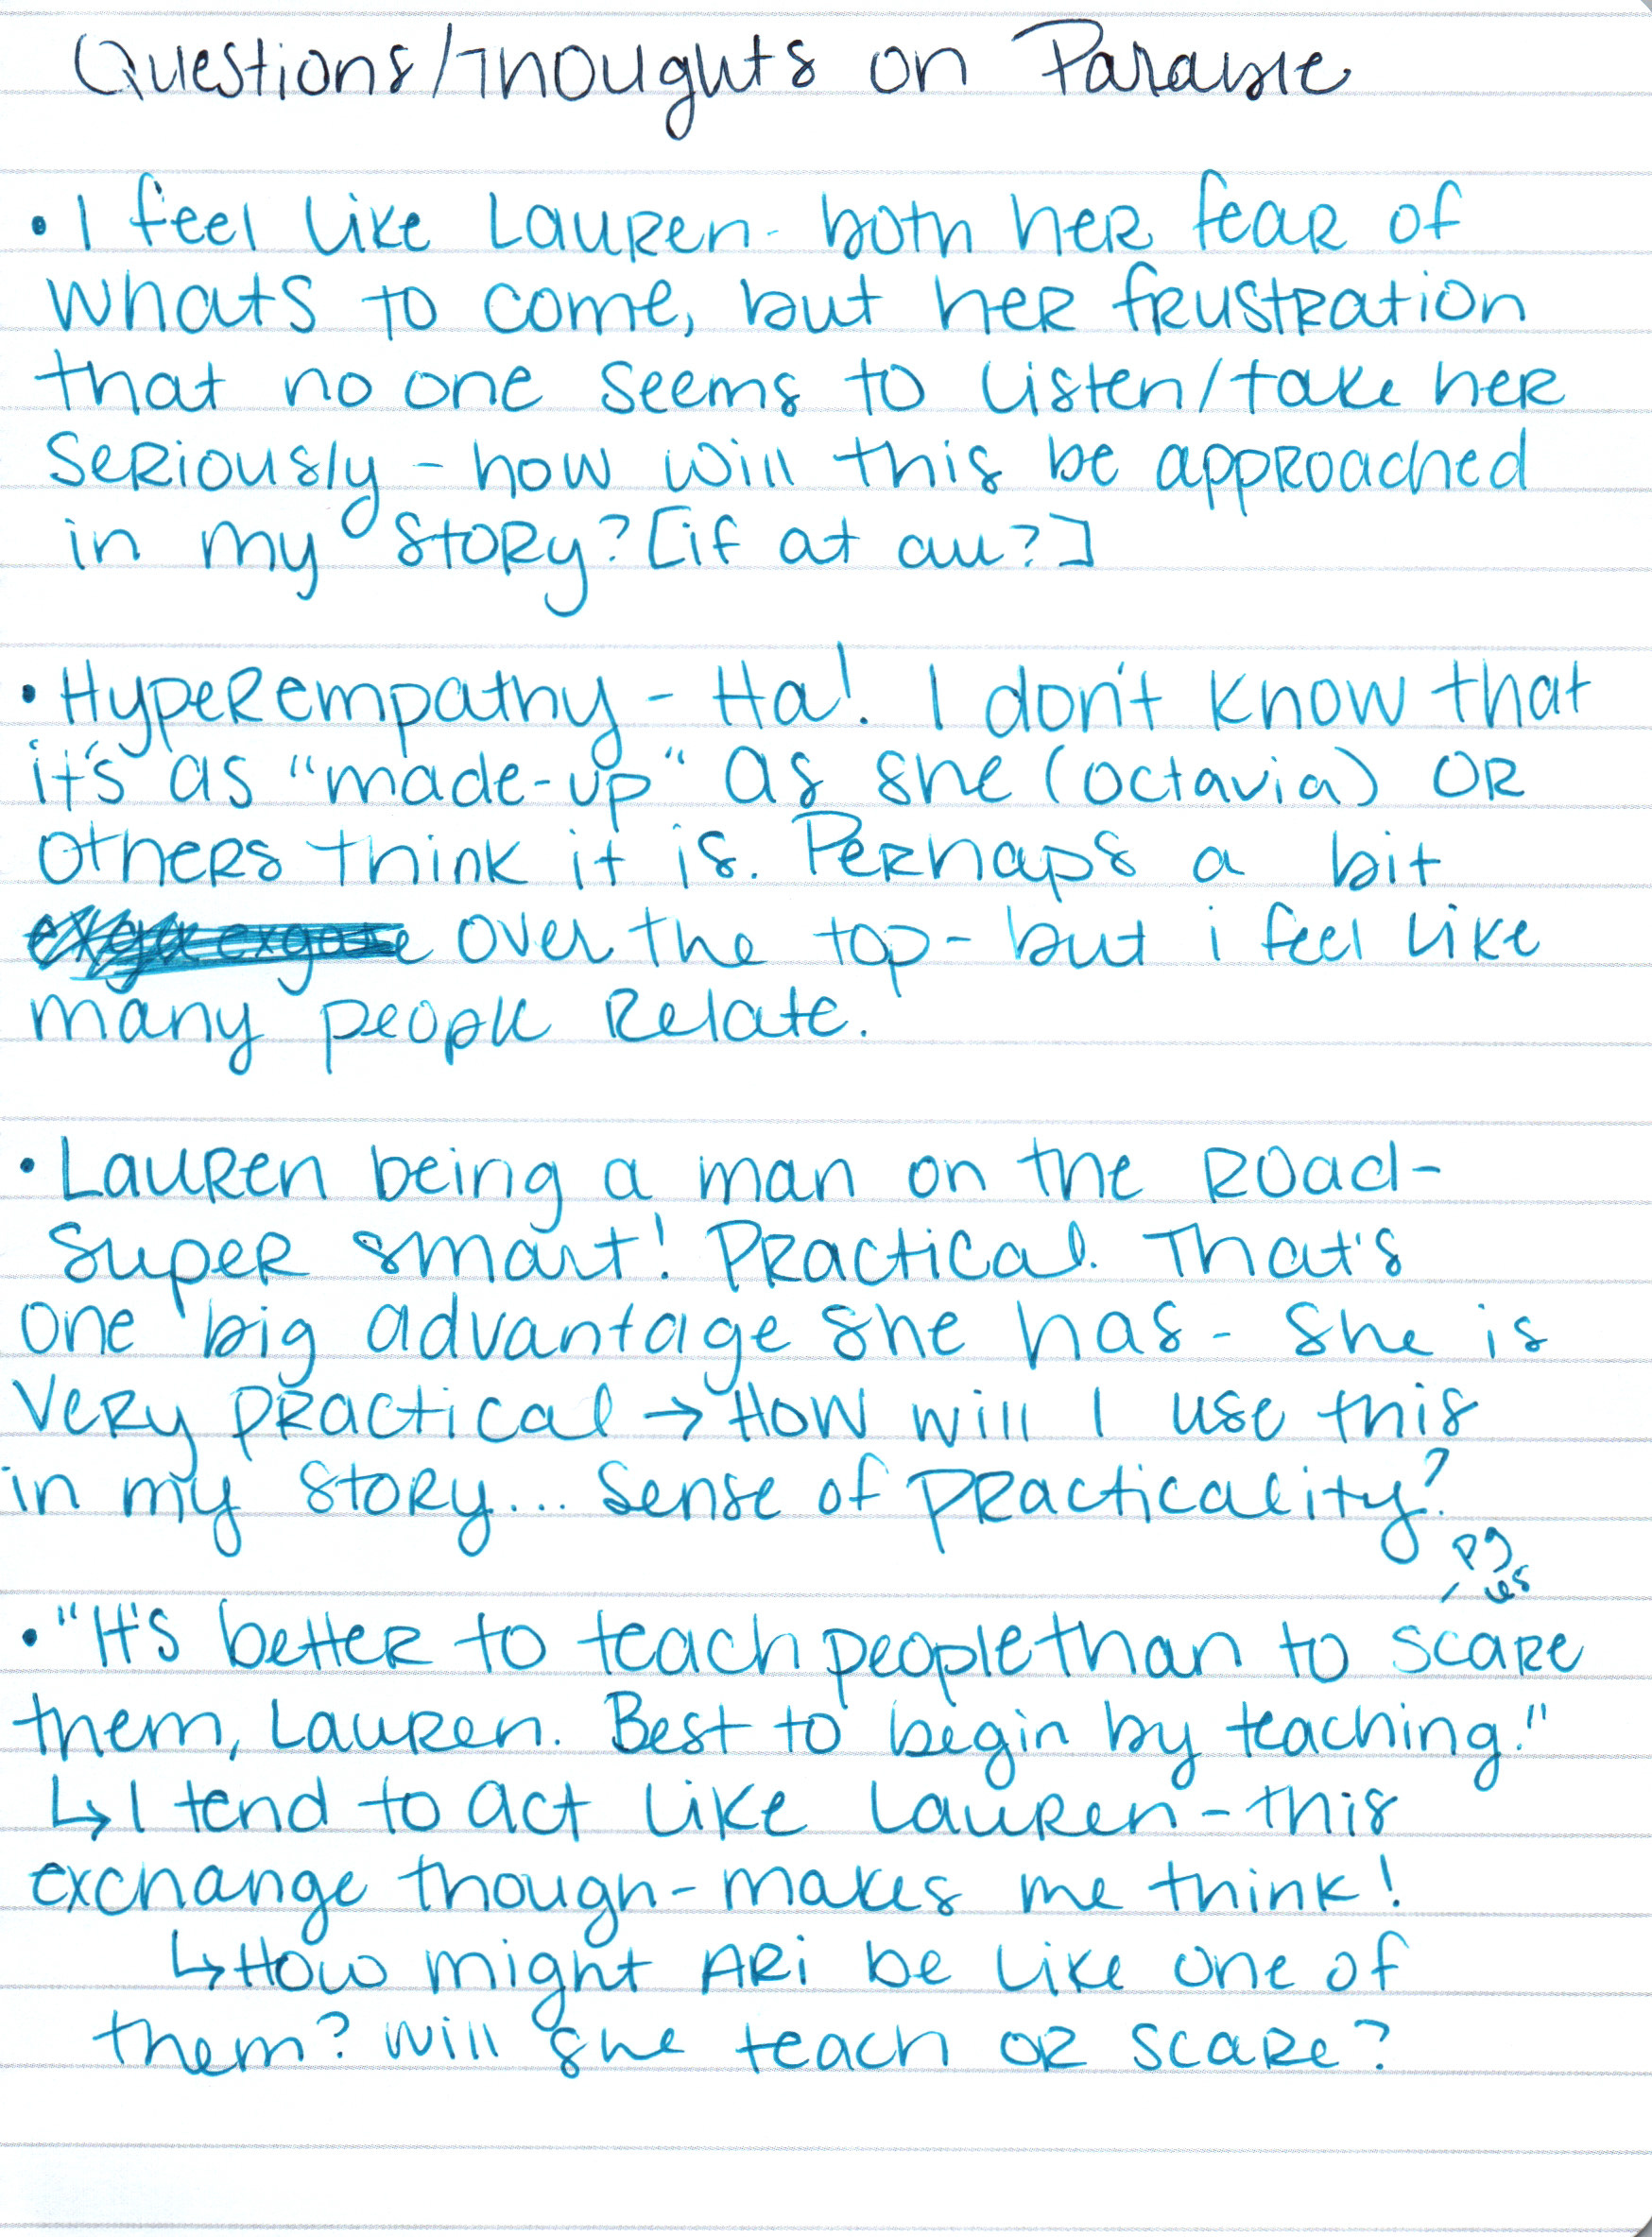 Questions/Thoughts on Parable
• I feel like Lauren - both her fear of
whats to come, but her frustration
that no one seems to listen/take her
seriously - how will this be approached
in my story? [if at all?]
• Hyperempathy - Ha! I don't know that
it's as "made-up" as she (octavia) or
others think it is. Perhaps a bit
over the top - but i feel like
many people relate.
• Lauren being a man on the road -
super smart! Practical. That's
one big advantage she has - she is
very practical → How will I use this
in my story... sense of practicality?
pg
• "It's better to teach people than to scare
them, Lauren. Best to begin by teaching."
↳ I tend to act like Lauren - this
exchange though - makes me think!
↳ How might Ari be like one of
them? will she teach or scare?